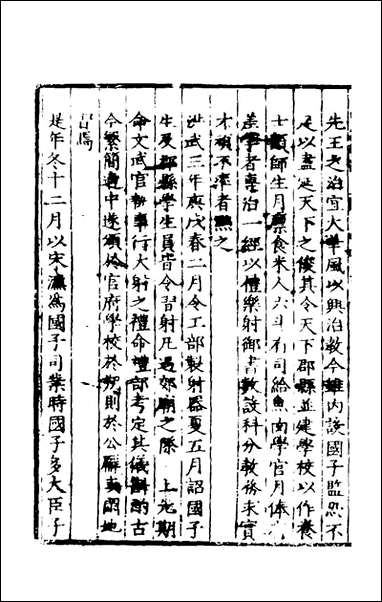 先王之治宜大華風以興治教今雖內設國子監恐不
足以盡延天下之俊其令天下郡縣並建學校以作養
士類師生月廩食米人六斗有司給魚肉學官月俸有
差學者專治一經以禮樂射御書數設科分教務求實
才頑不率者黜之
洪武三年庚戌春二月令工部製射器夏五月詔國子
生及郡縣學生員皆令習射凡遇郊廟之祭 上先期
命文武官執事行大射之禮命禮部考定其儀斟酌古
今繁簡適中遂頒於官府學校於朔則於公廨閒地
習焉
是年冬十二月以宋濂為國子司業時國子多大臣子